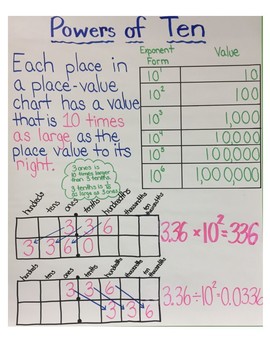 Powers of Ten
Each place in
a place-value
chart has a value
that is 10 times
as large as the
place value to its
right.
Exponent Form Value
10¹ 10
10² 100
10³ 1,000
10⁴ 10,000
10⁵ 100,000
10⁶ 1,000,000
3 ones is
10 times larger
than 3 tenths.
3 tenths is 1/10
as large as 3 ones.
hundreds tens ones tenths hundredths thousandths ten thousandths
3 3 6
3 3 6 0
3.36 × 10² = 336
hundreds tens ones tenths hundredths thousandths ten thousandths
3 3 6
3 3 6
3.36 ÷ 10² = 0.0336